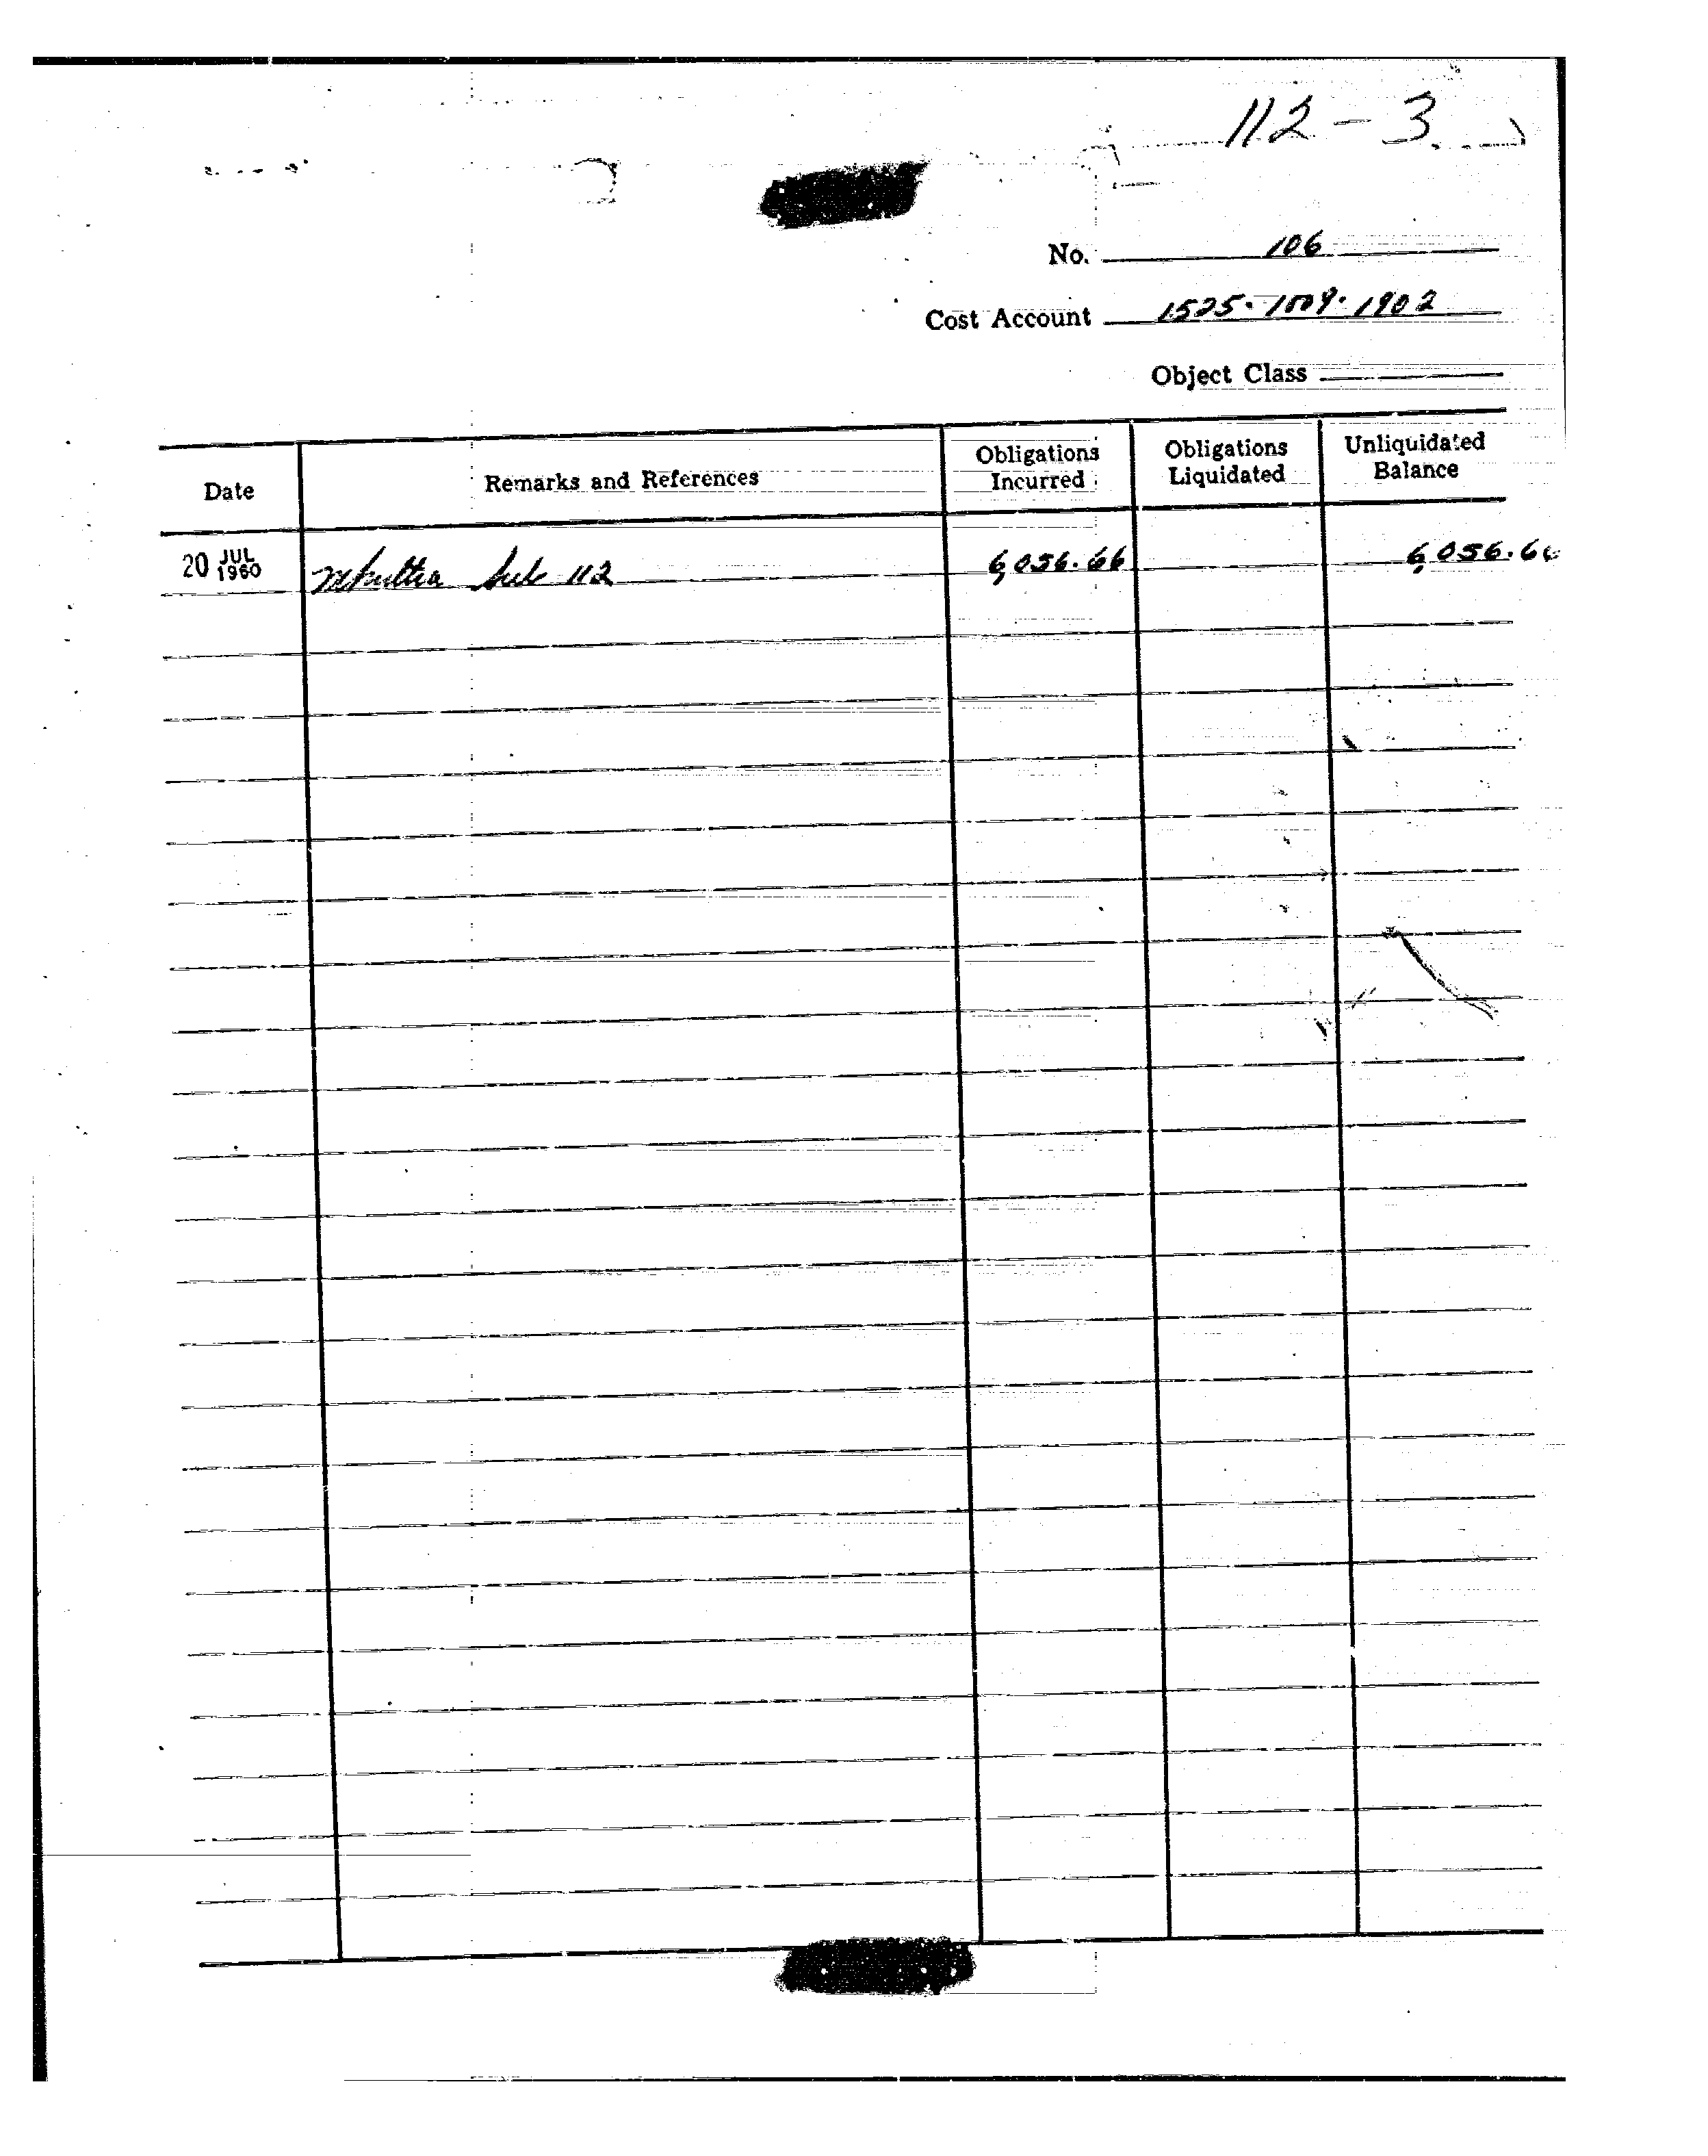 112 - 3
No. 106
Cost Account 1525-1009-1902
Object Class
Date Remarks and References Obligations Incurred Obligations Liquidated Unliquidated Balance
20 JUL 1960 Mkultra Sub 112 6,056.66 6,056.66